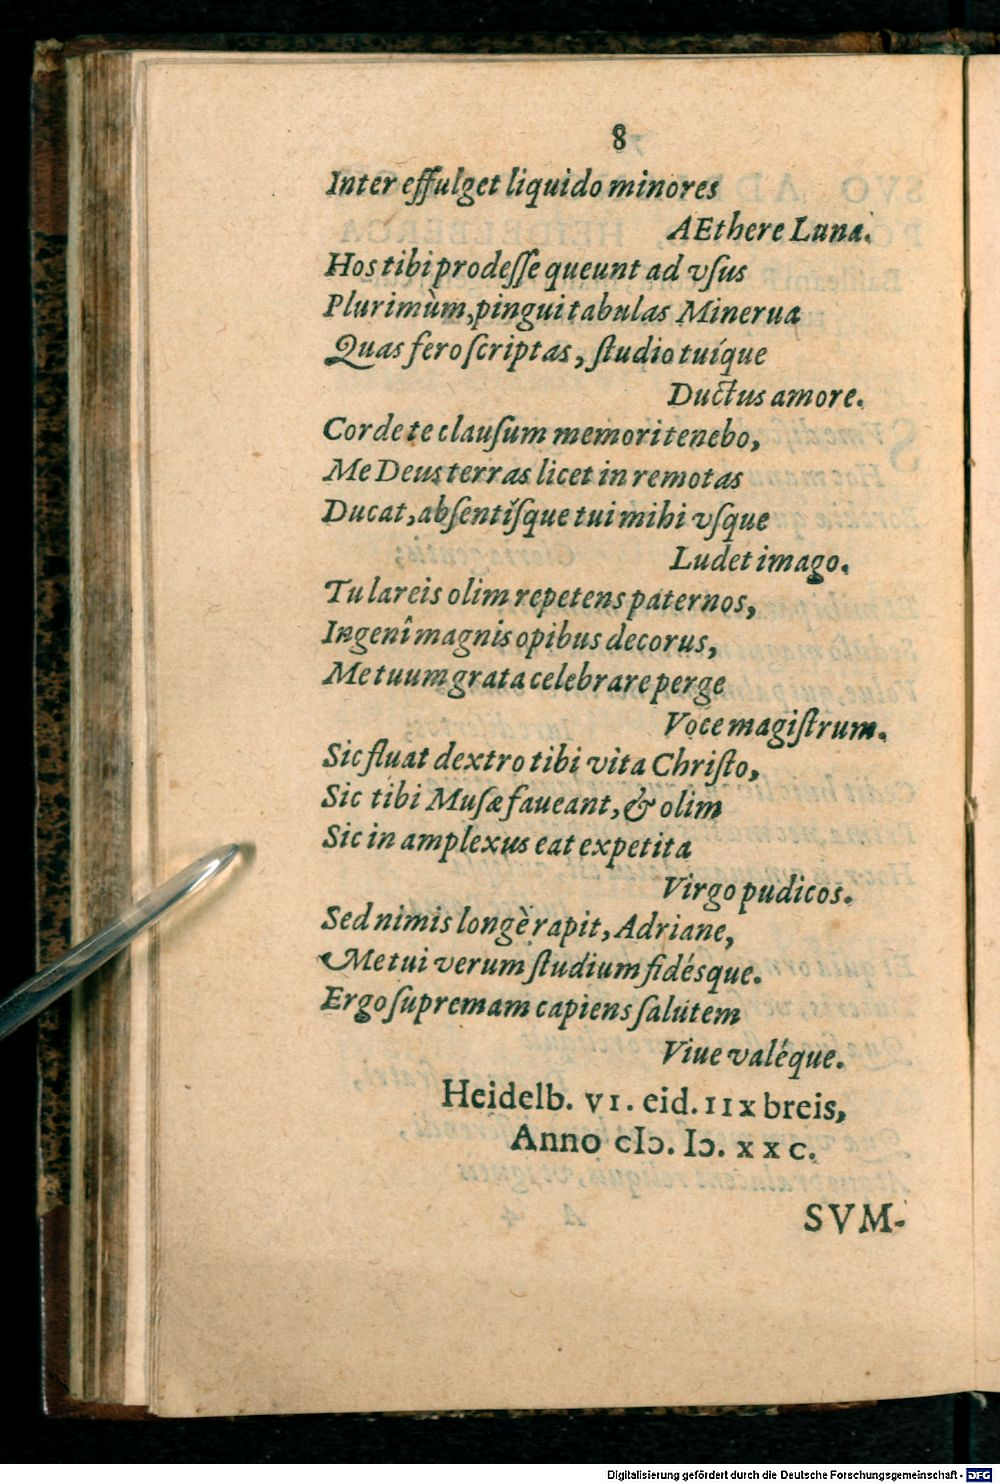 8
Inter effulget liquido minores
AEthere Luna.
Hos tibi prodeſſe queunt ad vſus
Plurimùm, pingui tabulas Minerua
Quas fero ſcriptas, ſtudio tuíque
Ductus amore.
Corde te clauſum memori tenebo,
Me Deus terras licet in remotas
Ducat, abſentíſque tui mihi vſque
Ludet imago.
Tu lareis olim repetens paternos,
Ingenî magnis opibus decorus,
Me tuum grata celebrare perge
Voce magiſtrum.
Sic fluat dextro tibi vita Chriſto,
Sic tibi Muſæ faueant, & olim
Sic in amplexus eat expetita
Virgo pudicos.
Sed nimis longè rapit, Adriane,
Me tui verum ſtudium fidésque.
Ergo ſupremam capiens ſalutem
Viue valéque.
Heidelb. VI. eid. IIX breis,
Anno cIɔ. Iɔ. XXC.
SVM-
Digitalisierung gefördert durch die Deutsche Forschungsgemeinschaft - DFG